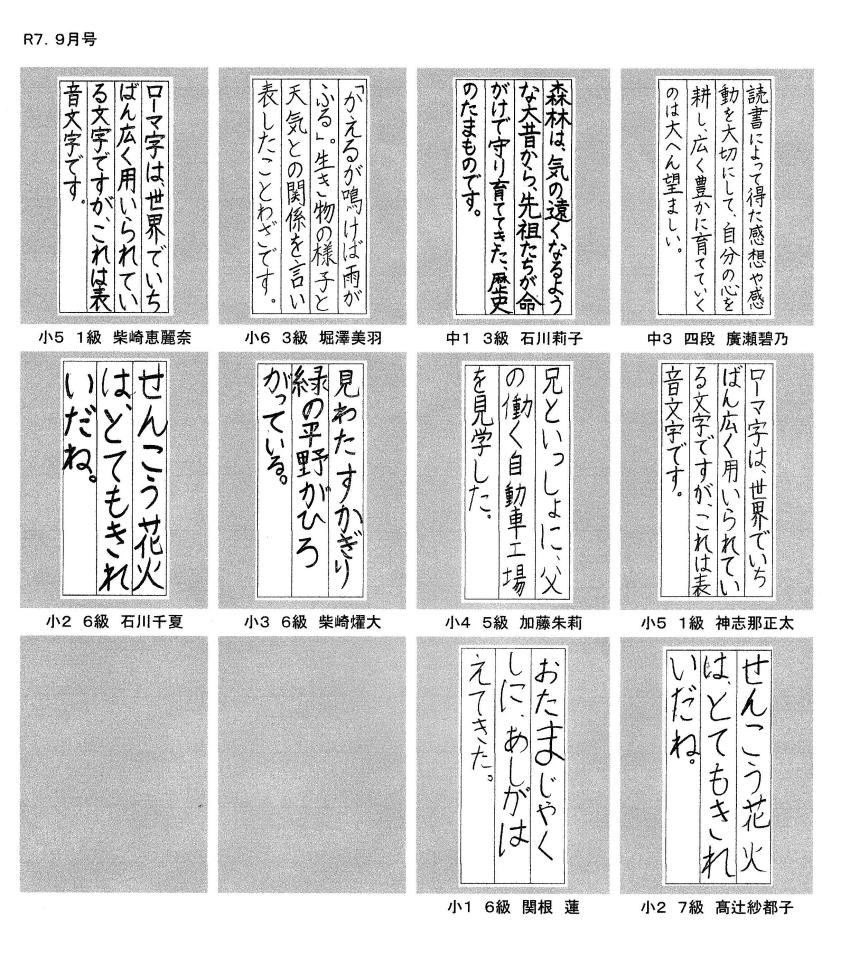 R7. 9月号
読書によって得た感想や感
動を大切にして、自分の心を
耕し、広く豊かに育てていく
のは大へん望ましい。
中3 四段 廣瀬碧乃
森林は、気の遠くなるよう
な大昔から、先祖たちが命
がけで守り育ててきた、歴史
のたまものです。
中1 3級 石川莉子
「かえるが鳴けば雨が
ふる」。生き物の様子と
天気との関係を言い
表したことわざです。
小6 3級 堀澤美羽
ローマ字は、世界でいち
ばん広く用いられてい
る文字ですが、これは表
音文字です。
小5 1級 柴崎恵麗奈
ローマ字は、世界でいち
ばん広く用いられてい
る文字ですが、これは表
音文字です。
小5 1級 神志那正太
兄といっしょに、父
の働く自動車工場
を見学した。
小4 5級 加藤朱莉
見わたすかぎり
緑の平野がひろ
がっている。
小3 6級 柴崎燿大
せんこう花火
は、とてもきれ
いだね。
小2 6級 石川千夏
せんこう花火
は、とてもきれ
いだね。
小2 7級 髙辻紗都子
おたまじゃく
しに、あしがは
えてきた。
小1 6級 関根 蓮